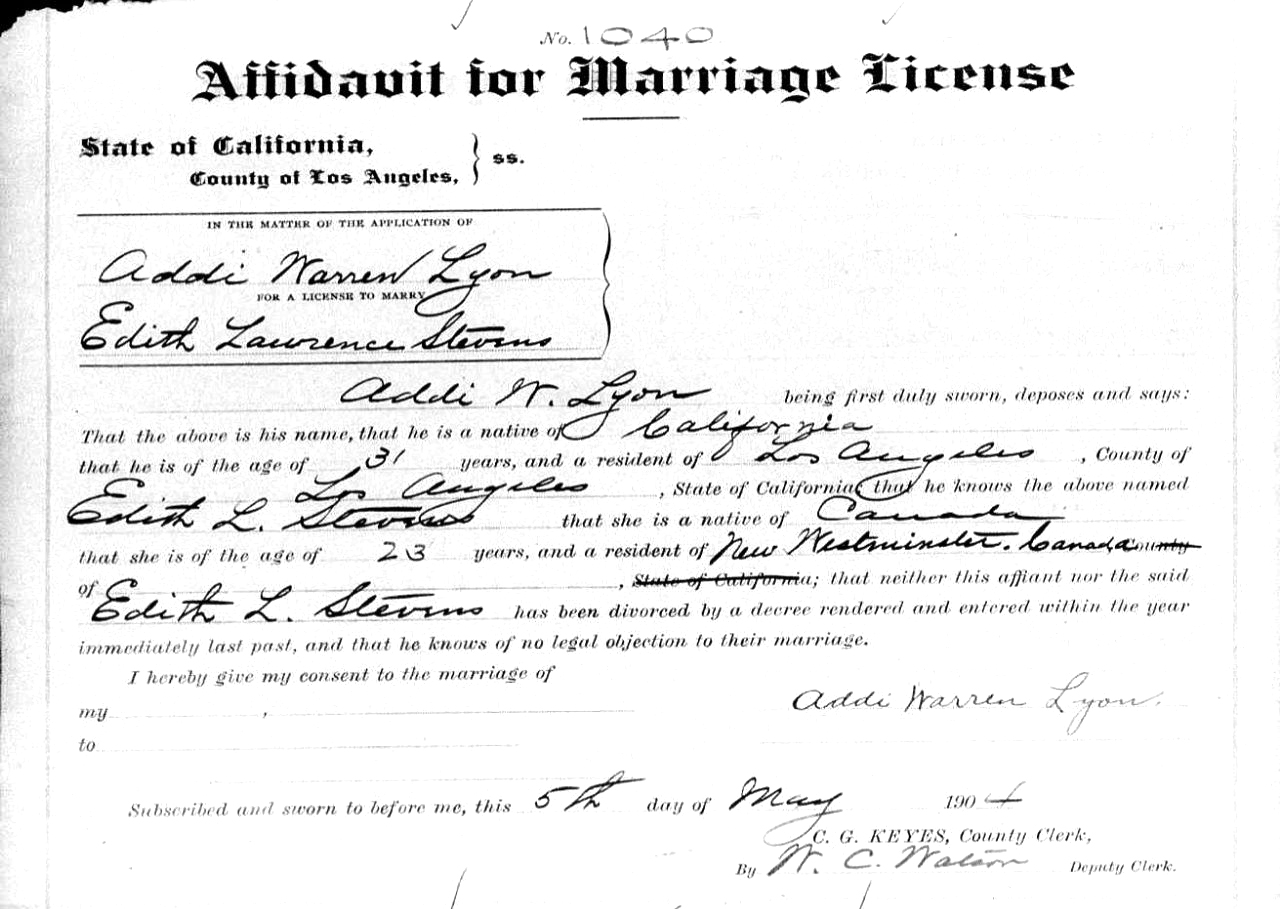 No. 1040
Affidavit for Marriage License
State of California,
County of Los Angeles, } ss.
IN THE MATTER OF THE APPLICATION OF
Addi Warren Lyon
FOR A LICENSE TO MARRY
Edith Lawrence Stevens
Addi W. Lyon being first duly sworn, deposes and says:
That the above is his name, that he is a native of California
that he is of the age of 31 years, and a resident of Los Angeles, County of
Los Angeles, State of California; that he knows the above named
Edith L. Stevens that she is a native of Canada
that she is of the age of 23 years, and a resident of New Westminster. Canada County
of , State of California; that neither this affiant nor the said
Edith L. Stevens has been divorced by a decree rendered and entered within the year
immediately last past, and that he knows of no legal objection to their marriage.
I hereby give my consent to the marriage of
my ,
Addi Warren Lyon.
to
Subscribed and sworn to before me, this 5th day of May 1904
C. G. KEYES, County Clerk,
By W. C. Watson Deputy Clerk.